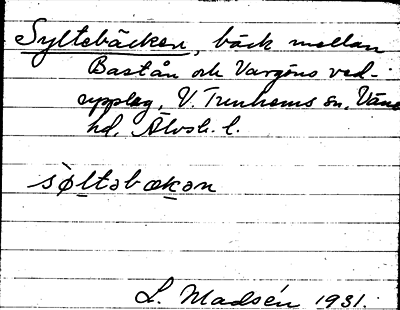 Syltebäcken, bäck mellan
Bastån och Vargöns ved-
upplag, V. Tunhems sn, Väne
hd, Älvsb. l.
sø̀ltəbækən
L. Madsén 1931.